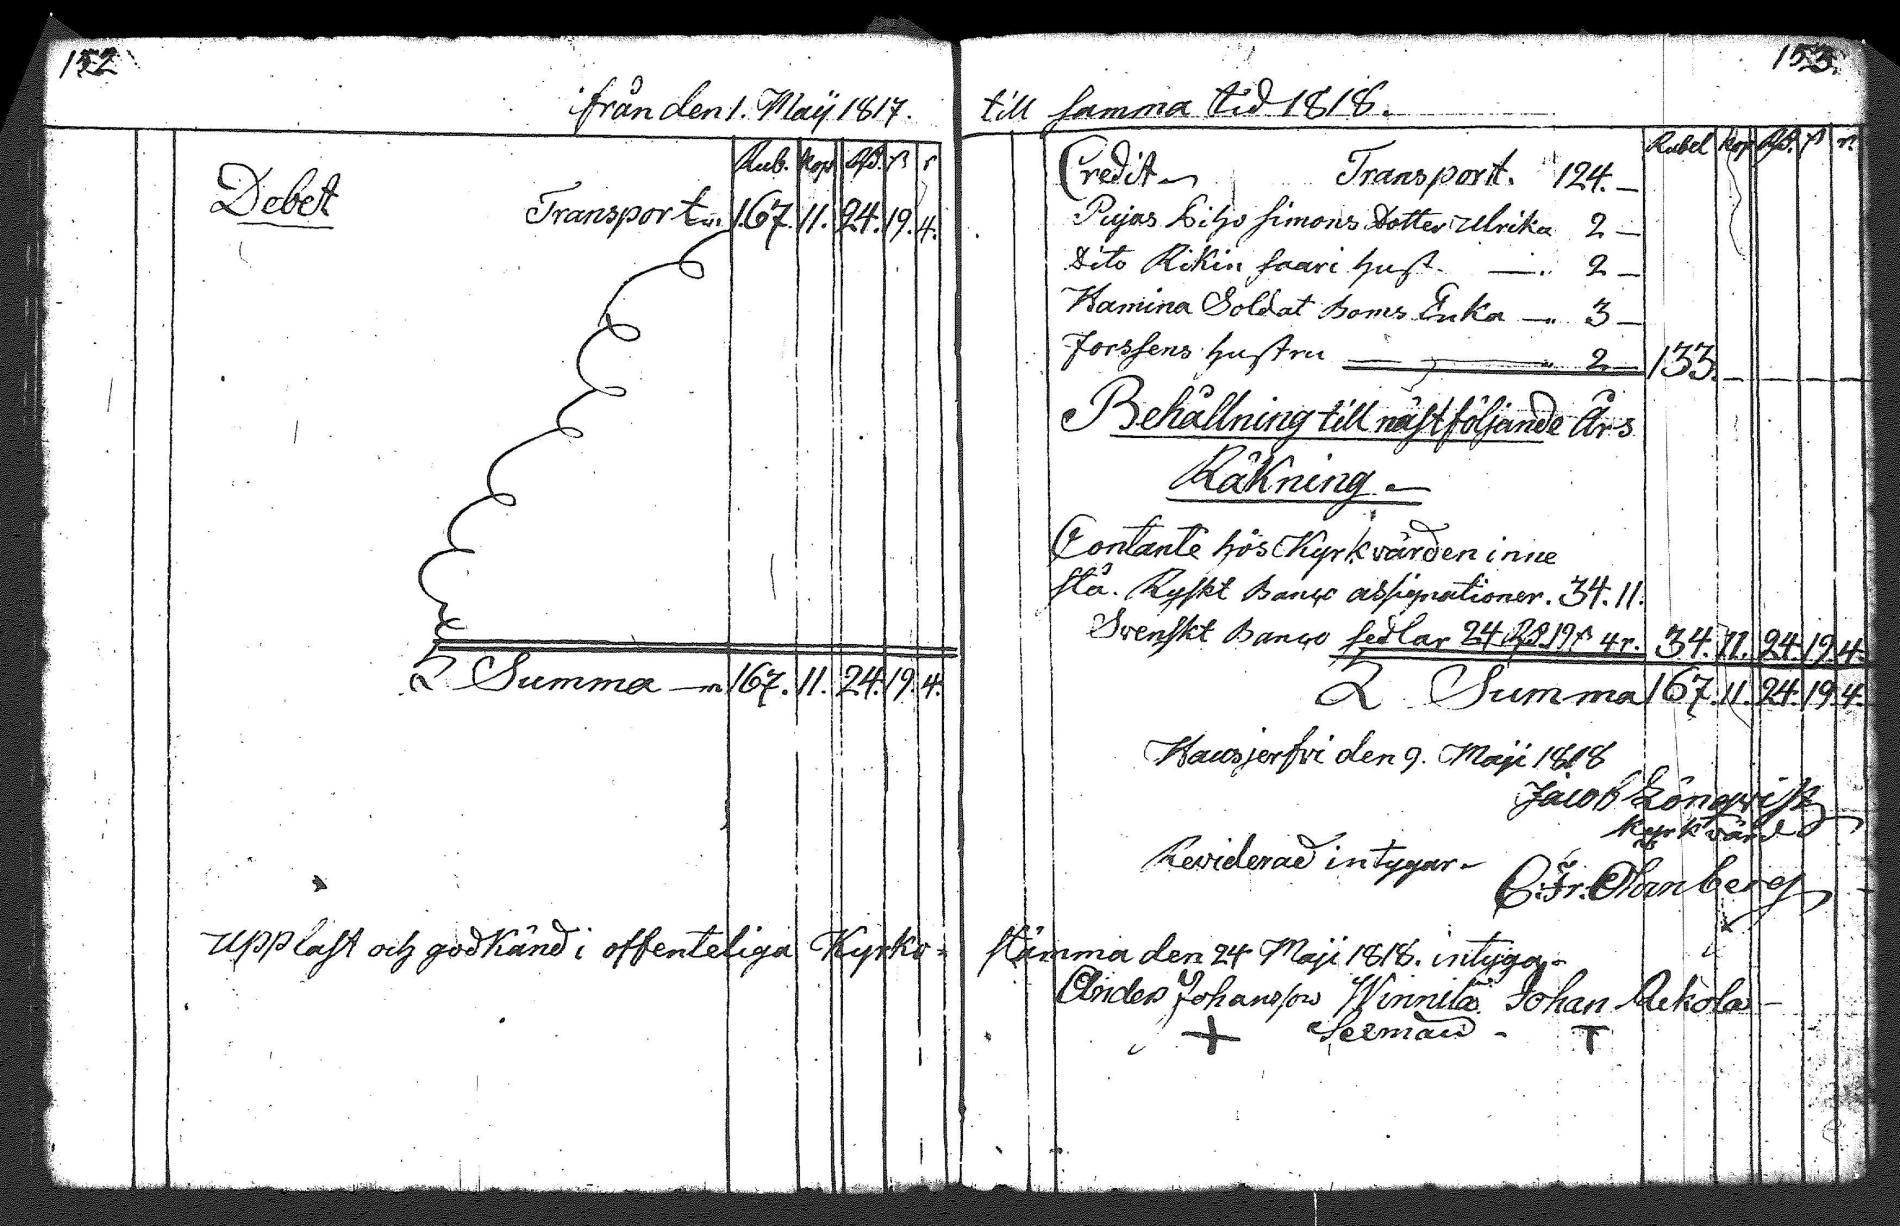 152
ifrån den 1. Maÿ 1817.
Rub. Kop. Rd. ß r
Debet Transport 167. 11. 24. 19. 4.
Summa 167. 11. 24. 19. 4.
Upplast och godkänd i offenteliga Kyrko-
153.
till samma tid 1818.
Rubel Kop Rd. ß r.
Credit Transport. 124. —
Pujas Liso Simons Dotter Ulrika 2 —
Dito Rikin saari hust. — 2 —
Hamina Soldat Boms Enka — 3 —
Forssens hustru — 2 — 133. —
Behållning till nästföljande Års
Räkning —
Contante hos Kyrkvärden inne
stå. Ryskt Banco assignationer. 34. 11.
Svenskt Banco sedlar 24 Rd. 19 ß 4 r. 34. 11. 24. 19. 4.
Summa 167. 11. 24. 19. 4.
Hausjerfvi den 9. Maji 1818
Jacob Lönqvist
Kyrkvärd
Reviderad intygar —
C. Fr.
stämma den 24 Maji 1818. intyga —
Anders Johansson Winnilä Johan Rekola —